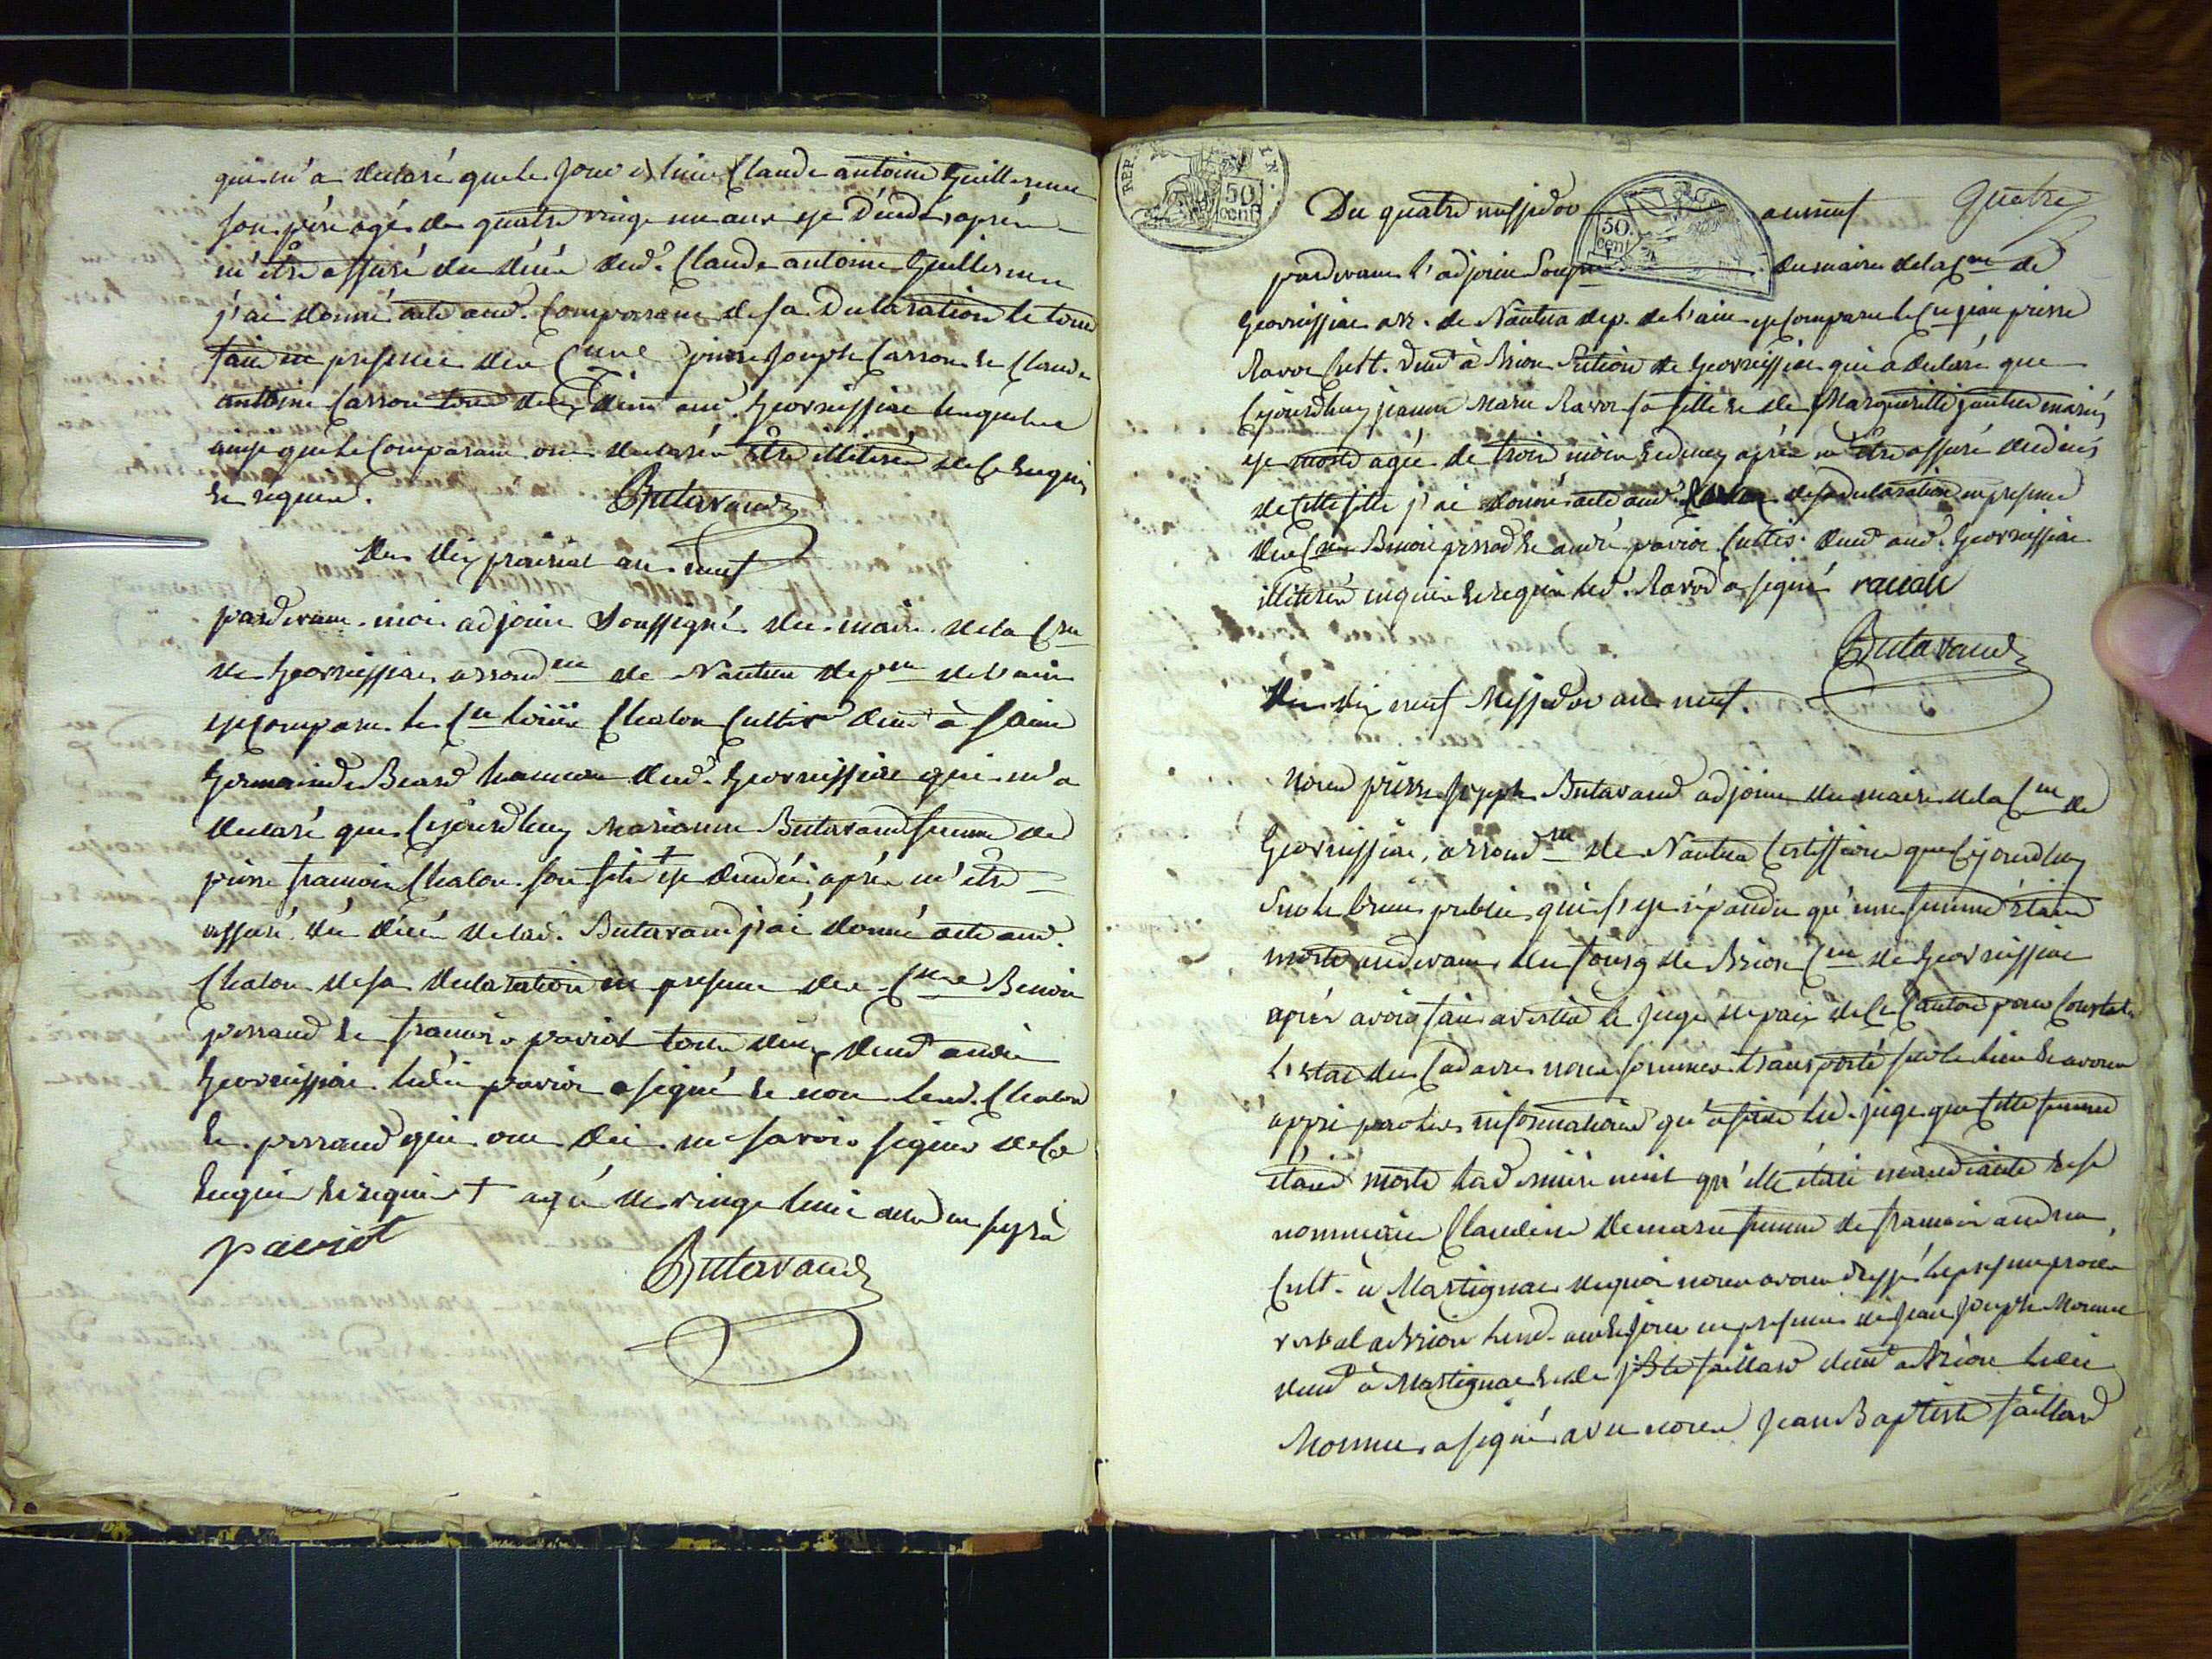 qui m'a declaré que le jour d'hier Claude antoine Guillermin
son père agé de quatre vingt un ans est décédé après
m'être assuré du décés dud. Claude antoine Guillermin
j'ai donné acte aud. Comparant de sa Declaration le tout
fait en presence des Cnes pierre Joseph Carron et Claude
antoine Carron tous deux demt aud. Geovreissiac lesquels
ainsi que le Comparant ont declaré être illiterés de ce Enquis
et requis.
Butavand
du dix prairial an neuf
pardevant moi adjoint soussigné du maire de la Cne
de Geovreissiac arrondnt de Nantua depnt de l'ain
est Comparu le Cn Chalon Cultivr demt à Saint
Germain de Beard hameau dud. Geovreissiac qui m'a
declaré que Cejourdhuy marianne Butavand femme de
pierre francois Chalon son fils + est decedée, après m'être
assuré du décés de lad. Butavand j'ai donné acte aud.
Chalon de sa declaration en presence des Cnes Benoit
perraud et francois paviot tous deux demt audit
Geovreissiac ledit paviot a signé et non led. Chalon
et perraud qui ont dit ne savoir signer de ce
Enquis et requis + agée de vingt huit ans
paviot
Butavand
REP.
50 cent
50. cent
Quatre
Du quatre messidor an neuf
pardevant l'adjoint du maire de la Cne de
Geovreissiac arr. de Nantua dep. de l'ain est Comparu le Cn jean pierre
Ravot Cult. demt à Brion Section de Geovreissiac qui a declaré que
Cejourdhuy jeanne Marie Ravot sa fille et de Marguerite mariés
est morte agée de trois mois et demy après m'être assuré du décés
de cette fille j'ai donné acte aud. de sa declaration en presence
des Cnes Benoit perrod et andré paviot Cultis. demt aud. Geovreissiac
illiterés enquis et requis led. Ravod a signé ravau
Butavand
du dix neuf Messidor an neuf.
Nous pierre Joseph Butavand adjoint du maire de la Cne de
Geovreissiac, arrondnt de Nantua Certiffions que Cejourdhuy
Sur le bruit public qui s'est répandu qu'une femme étoit
morte au devant du fourg de Brion Cne de Geovreissiac
après avoir fait avertir le juge de paix de ce Canton pour Constater
l'état du Cadavre nous sommes transporté sur le lieu et avons
appri par les informations qu'a faite led. juge que cette femme
étoit morte la derniere nuit qu'elle étoit mandiante et se
nommoit Claudine femme de francois
Cult. à Martignat dequoi nous avons dressé le present procés
verbal à Brion lesd. an et jour en presence de Jean Joseph Monnet
demt à Martignat et de jBte faillard demt à Brion ledit
Monnet a signé avec nous Jean Baptiste faillard